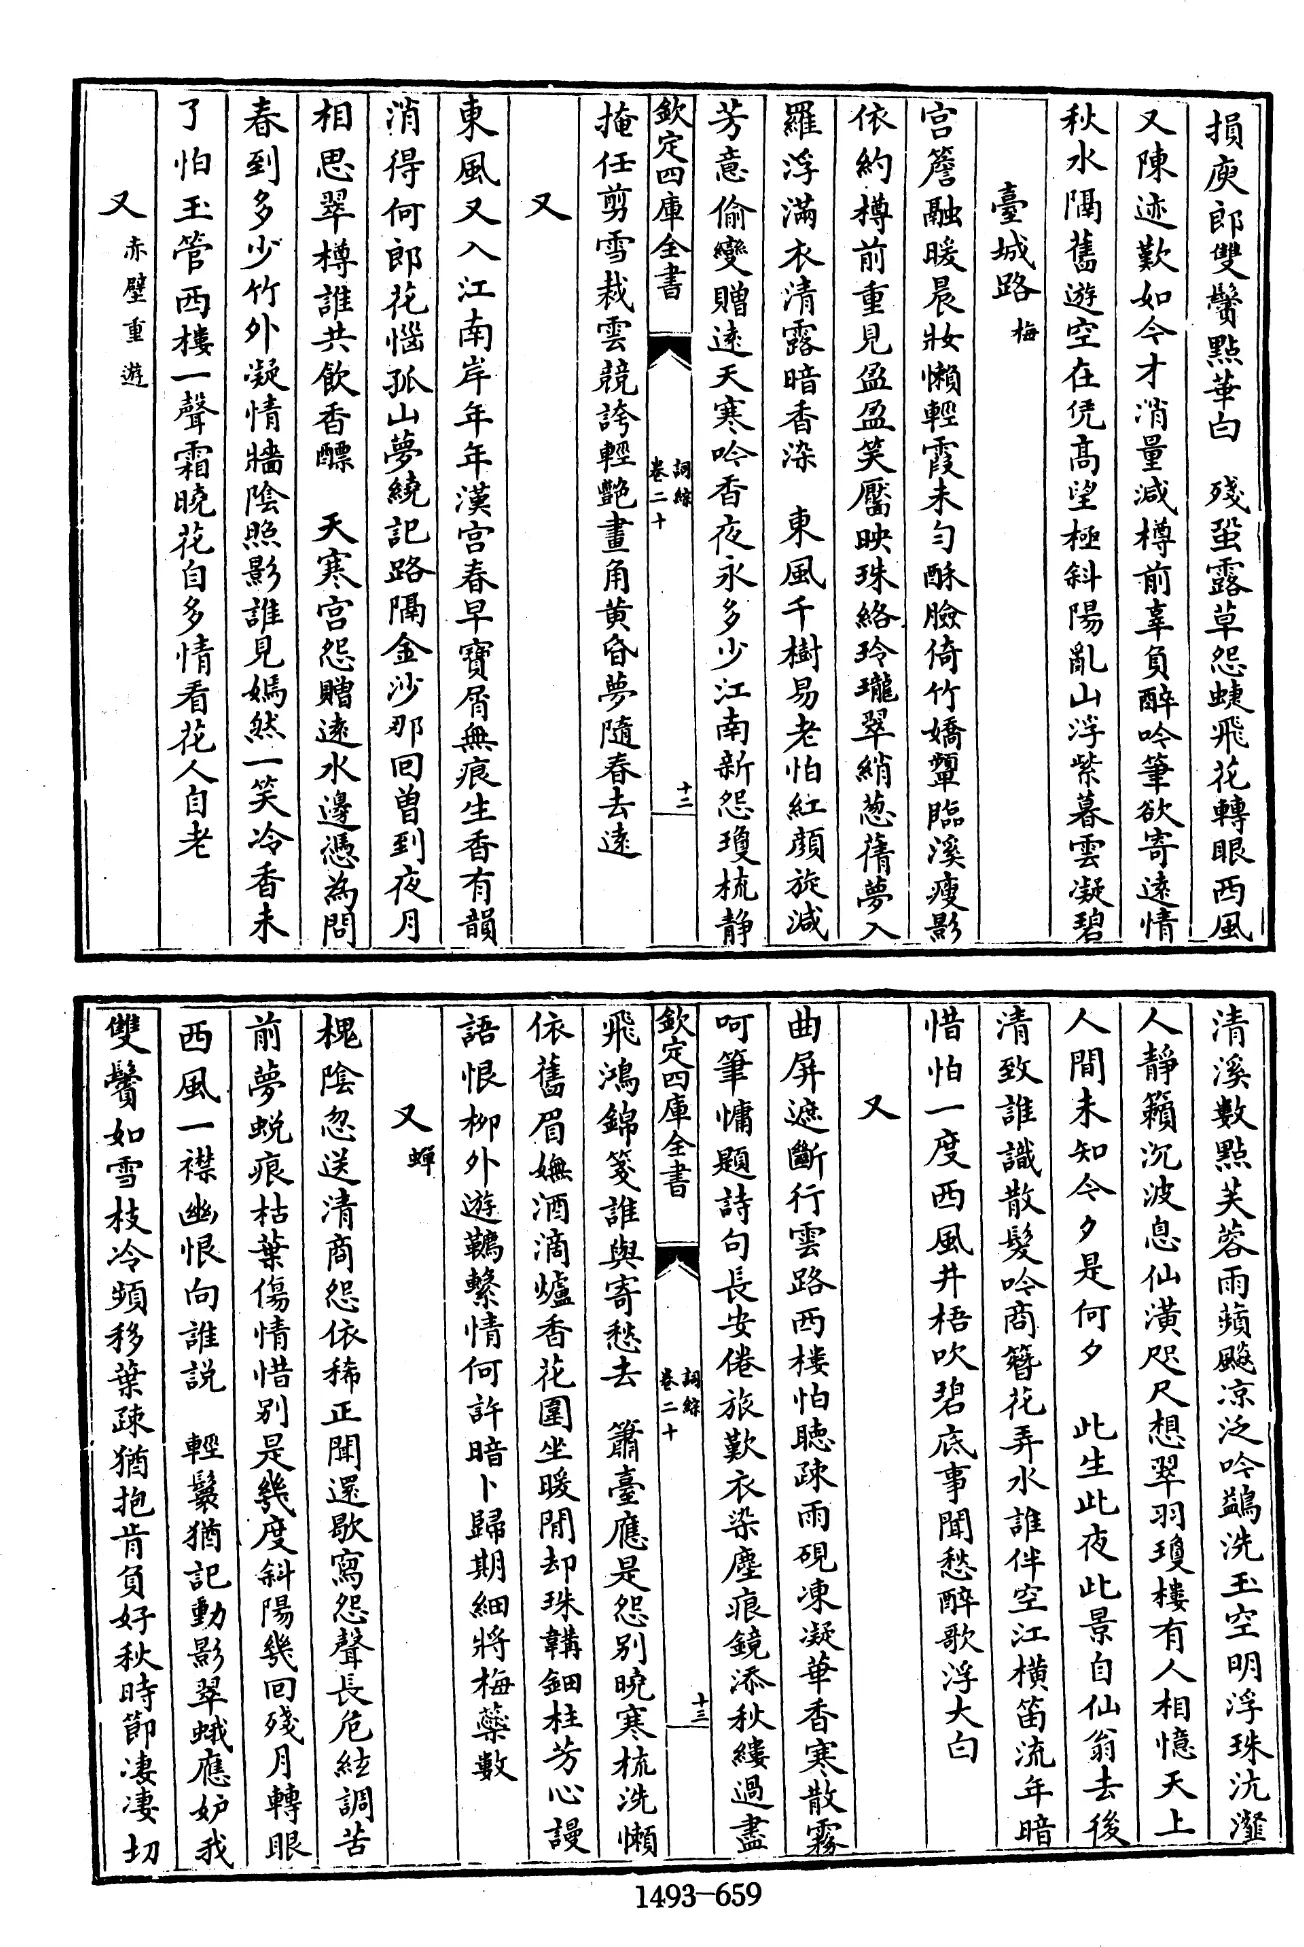 損庾郎雙鬢點華白　殘蛩露草怨蜨飛花轉眼西風
又陳迹歎如今才消量減樽前辜負醉吟筆欲寄遠情
秋水隔舊遊空在凭高望極斜陽亂山浮紫暮雲凝碧
臺城路 梅
宫簷融暖晨妝懶輕霞未勻酥臉倚竹嬌顰臨溪瘦影
依約樽前重見盈盈笑靨映珠絡玲瓏翠綃葱蒨夢入
羅浮滿衣清露暗香染　東風千樹易老怕紅顔旋減
芳意偷變贈遠天寒吟香夜永多少江南新怨瓊梳静
欽定四庫全書
詞綜
卷二十
十二
掩任剪雪裁雲競誇輕艷畫角黄昏夢隨春去遠
又
東風又入江南岸年年漢宫春早寶屑無痕生香有韻
消得何郎花惱孤山夢繞記路隔金沙那回曽到夜月
相思翠樽誰共飲香醥　天寒宫怨贈遠水邊憑為問
春到多少竹外凝情牆陰照影誰見嫣然一笑冷香未
了怕玉管西樓一聲霜曉花自多情看花人自老
又 赤壁重遊
清溪數點芙蓉雨蘋飈凉泛吟鷁洗玉空明浮珠沆瀣
人静籟沉波息仙潢咫尺想翠羽瓊樓有人相憶天上
人間未知今夕是何夕　此生此夜此景自仙翁去後
清致誰識散髮吟商簪花弄水誰伴空江橫笛流年暗
惜怕一度西風井梧吹碧底事閒愁醉歌浮大白
又
曲屏遮斷行雲路西樓怕聽疎雨硯凍凝華香寒散霧
呵筆慵題詩句長安倦旅歎衣染塵痕鏡添秋縷過盡
欽定四庫全書
詞綜
卷二十
十三
飛鴻錦箋誰與寄愁去　簫臺應是怨别曉寒梳洗懶
依舊眉嫵酒滴爐香花圍坐暖閒却珠韝鈿柱芳心謾
語恨柳外遊韉繫情何許暗卜歸期細將梅蘂數
又 蟬
槐陰忽送清商怨依稀正聞還歇寫怨聲長危絃調苦
前夢蜕痕枯葉傷情惜别是幾度斜陽幾回殘月轉眼
西風一襟幽恨向誰説　輕鬟猶記動影翠蛾應妒我
雙鬢如雪枝冷頻移葉疎猶抱肯負好秋時節凄凄切
1493—659